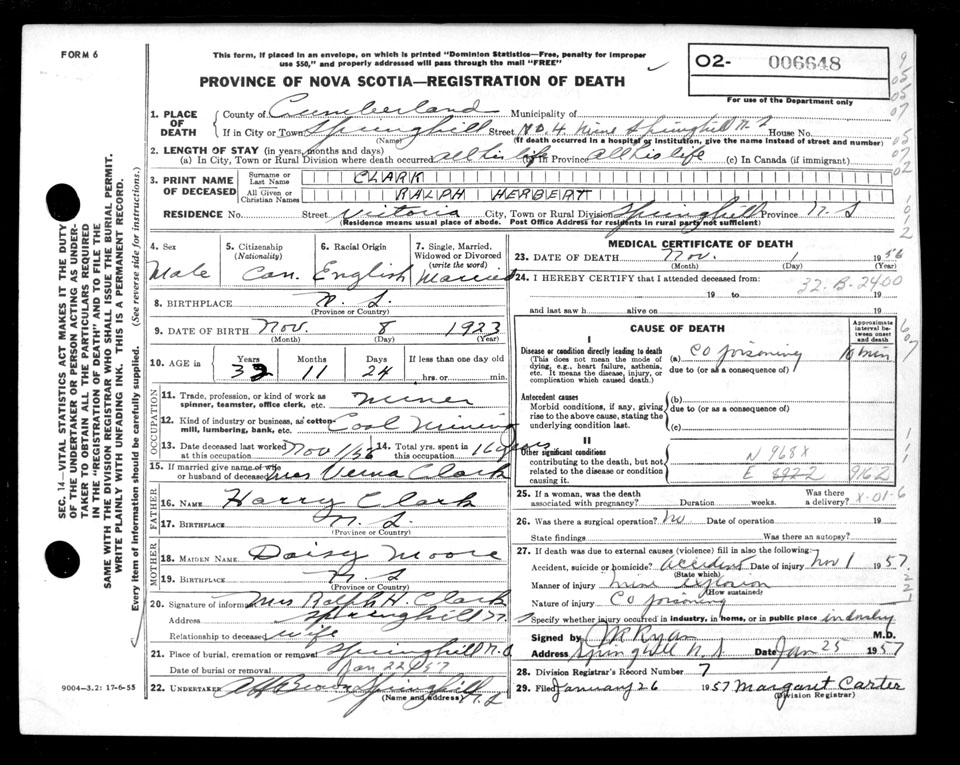 FORM 6
This form, if placed in an envelope, on which is printed "Dominion Statistics—Free, penalty for improper
use $50," and properly addressed will pass through the mail "FREE"
PROVINCE OF NOVA SCOTIA—REGISTRATION OF DEATH
O2- 006648
For use of the Department only
SEC. 14—VITAL STATISTICS ACT MAKES IT THE DUTY
OF THE UNDERTAKER OR PERSON ACTING AS UNDER-
TAKER TO OBTAIN ALL THE PARTICULARS REQUIRED
IN THE "REGISTRATION OF DEATH" AND TO FILE THE
SAME WITH THE DIVISION REGISTRAR WHO SHALL ISSUE THE BURIAL PERMIT.
WRITE PLAINLY WITH UNFADING INK. THIS IS A PERMANENT RECORD.
Every item of information should be carefully supplied. (See reverse side for instructions.)
1. PLACE OF DEATH
County of Cumberland Municipality of
If in City or Town Springhill Street No. 4 Mine Springhill N.S House No.
(Name) (If death occurred in a hospital or institution, give name instead of street and number)
2. LENGTH OF STAY (in years, months and days)
(a) In City, Town or Rural Division where death occurred all his life (b) In Province all his life (c) In Canada (if immigrant)
3. PRINT NAME OF DECEASED
Surname or Last Name CLARK
All Given or Christian Names RALPH HERBERT
RESIDENCE No. Street Victoria City, Town or Rural Division Springhill Province N.S
(Residence means usual place of abode. Post Office Address for residents in rural party not sufficient)
4. Sex Male
5. Citizenship (Nationality) Can.
6. Racial Origin English
7. Single, Married, Widowed or Divorced (write the word) Married
8. BIRTHPLACE N.S.
(Province or Country)
9. DATE OF BIRTH Nov. 8 1923
(Month) (Day) (Year)
10. AGE in Years Months Days If less than one day old
11 24 hrs. or min.
OCCUPATION
11. Trade, profession, or kind of work as spinner, teamster, office clerk, etc. Miner
12. Kind of industry or business, as cotton-mill, lumbering, bank, etc. Coal Mining
13. Date deceased last worked at this occupation Nov 1/56
14. Total yrs. spent in this occupation 16 years
15. If married give name of wife or husband of deceased Mrs Verna Clark
FATHER
16. NAME Harry Clark
17. BIRTHPLACE N.S.
(Province or Country)
MOTHER
18. MAIDEN NAME Daisy Moore
19. BIRTHPLACE N.S
(Province or Country)
20. Signature of informant Mrs Ralph H Clark
Address Springhill N.S
Relationship to deceased wife
21. Place of burial, cremation or removal Springhill N.S
Date of burial or removal Jan 22 1957
22. UNDERTAKER Brown Springhill N.S
(Name and address)
9004—3.2: 17-6-55
MEDICAL CERTIFICATE OF DEATH
23. DATE OF DEATH Nov. 1 1956
(Month) (Day) (Year)
24. I HEREBY CERTIFY that I attended deceased from:
32.B.2400
19 to 19
and last saw h alive on 19
CAUSE OF DEATH
Approximate interval between onset and death
I
Disease or condition directly leading to death (a) CO poisoning 10 min
(This does not mean the mode of dying, e.g., heart failure, asthenia, etc. It means the disease, injury, or complication which caused death.)
due to (or as a consequence of)
Antecedent causes
Morbid conditions, if any, giving rise to the above cause, stating the underlying condition last.
(b)
due to (or as a consequence of)
(c)
II
Other significant conditions
contributing to the death, but not related to the disease or condition causing it.
N 968X
E 9162
25. If a woman, was the death associated with pregnancy? Duration weeks. Was there a delivery? X-01-6
26. Was there a surgical operation? No Date of operation 19
State findings Was there an autopsy?
27. If death was due to external causes (violence) fill in also the following:
Accident, suicide or homicide? Accident Date of injury Nov 1 1957
(State which)
Manner of injury Mine Explosion
(How sustained)
Nature of injury CO poisoning
Specify whether injury occurred in industry, in home, or in public place industry
Signed by JM Ryan M.D.
Address Springhill N.S Date Jan 25 1957
28. Division Registrar's Record Number 7
29. Filed January 26 1957 Margaret Carter
(Division Registrar)